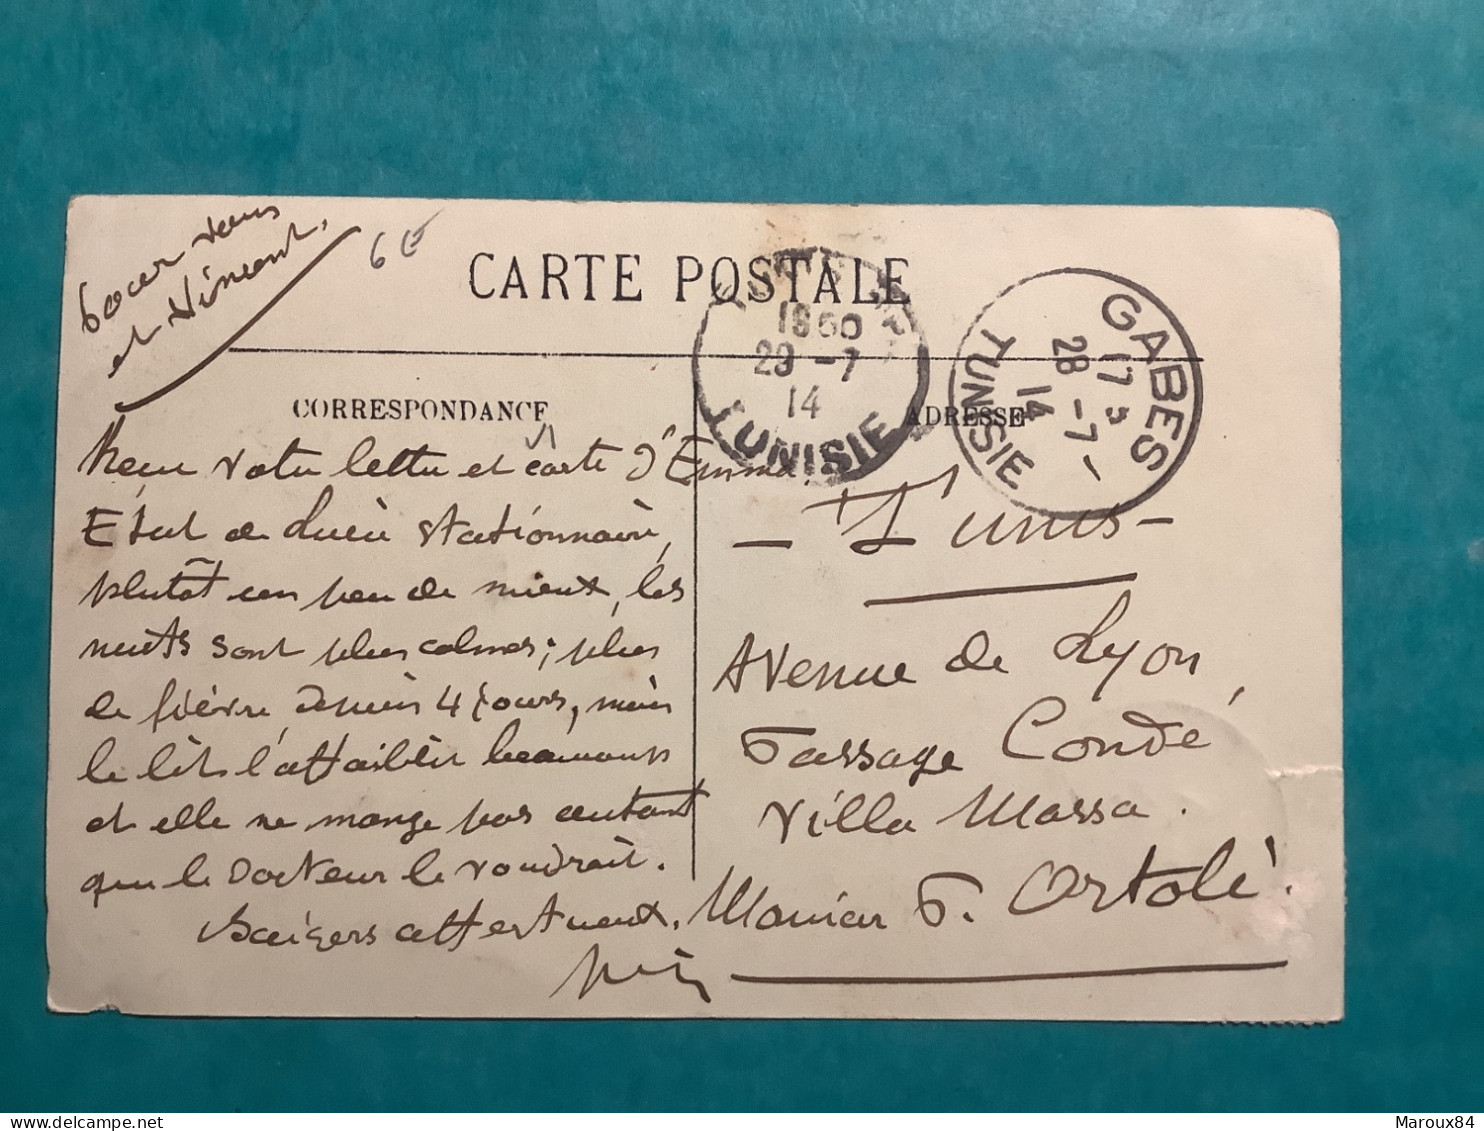 pour vous
et Vincent.
6 €
CARTE POSTALE
1950
29 -7
14
TUNISIE
GABES
17
28 -7 -
14
TUNISIE
CORRESPONDANCE
ADRESSE
Reçu votre lettre et carte d'Emma.
Etat de Lucie stationnaire,
plutôt un peu de mieux, les
nuits sont plus calmes; plus
de fièvre depuis 4 jours, mais
le lit l'affaiblit beaucoup
et elle ne mange pas autant
que le Docteur le voudrait.
Baisers affectueux.
- Tunis -
Avenue de Lyon,
Passage Condé
Villa Massa.
P. Ortolé.
Maroux84